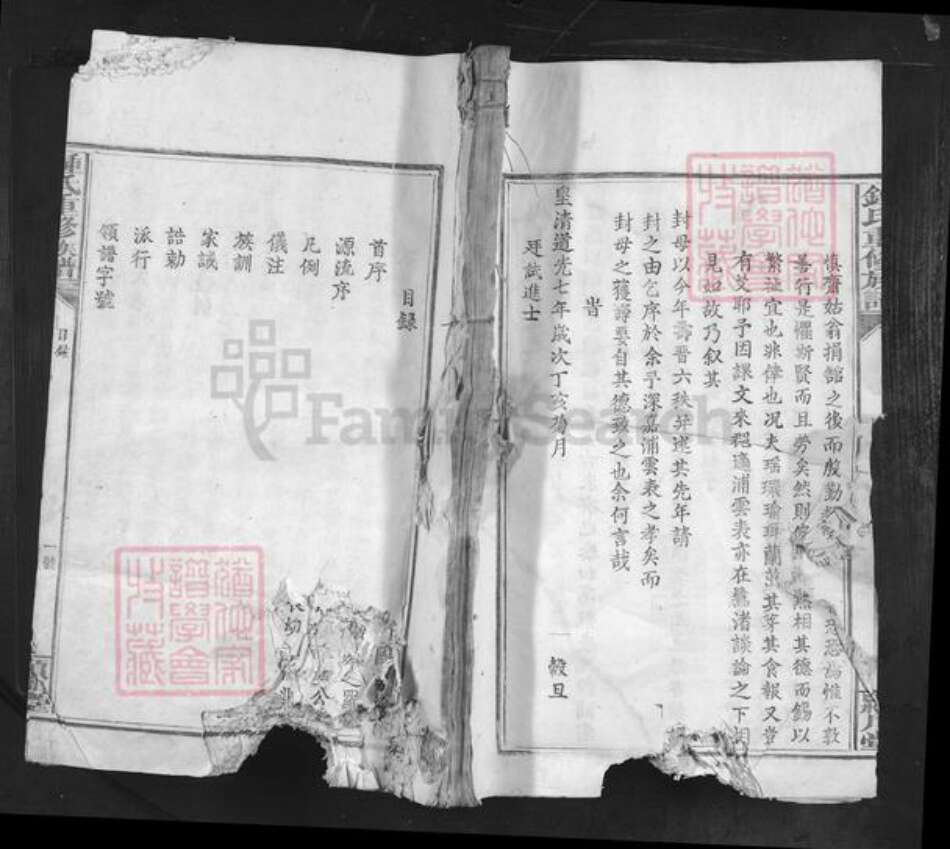 慎齋姑翁捐館之後而殷勤
恐為惟不敦
善行是懼斯賢而且勞矣然則
熟相其德而錫以
繁祉宜也非倖也况夫瑶環瑜珥蘭茁其芽其食報又豈
有艾耶予因課文來
浦雲表亦在鰲渚談論之下相
見如故乃叙其
封母以今年壽晋六秩并述其先年請
封之由乞序於余予深嘉浦雲表之孝矣而
封母之獲壽要自其德致之也余何言哉
旹
皇清道光七年歲次丁亥
月
穀旦
廷試進士
目錄
首序
源流序
凡例
儀注
族訓
家誡
誥勅
派行
領譜字號
鍾氏重修族譜
目錄
FamilySearch